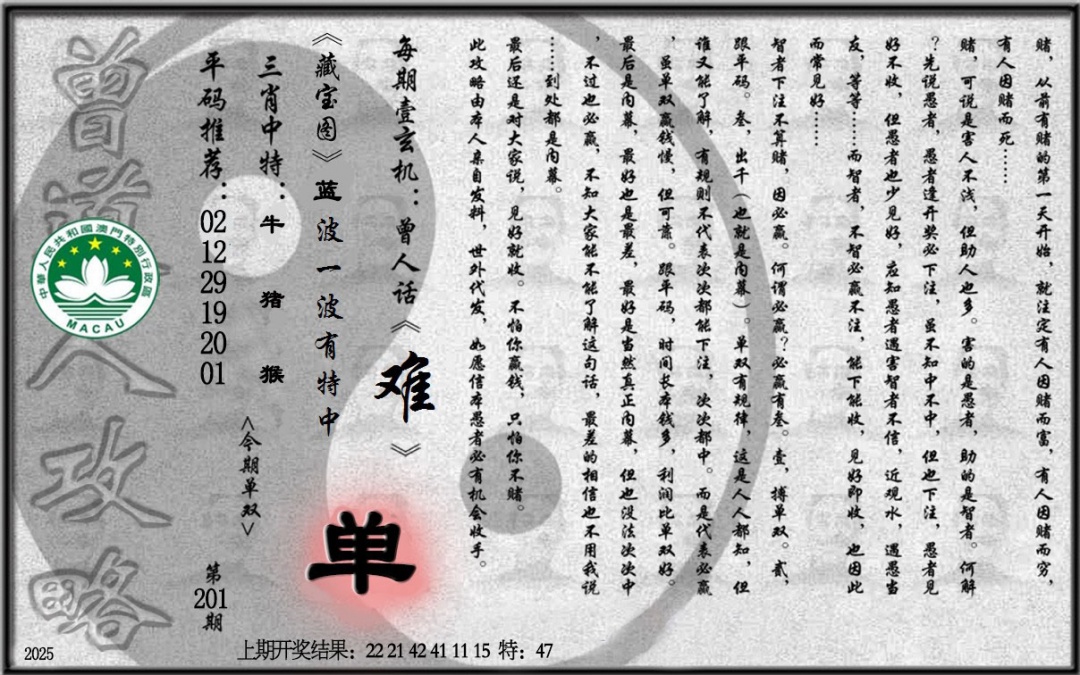 赌，从前有赌的第一天开始，就注定有人因赌而富，有人因赌而穷，
有人因赌而死……
赌，可说是害人不浅，但助人也多。害的是愚者，助的是智者。何解
？先说愚者，愚者逢开奖必下注，虽不知中不中，但也下注，愚者见
好不收，但愚者也少见好，应知愚者遇害智者不信，近观水，遇愚当
友，等等……而智者，不智必赢不注，能下能收，见好即收，也因此
而常见好……
智者下注不算赌，因必赢。何谓必赢？必赢有叁。壹，搏单双。贰，
跟平码。叁，出千（也就是内幕）。单双有规律，这是人人都知，但
谁又能了解，有规则不代表次次都能下注，次次都中。而是代表必赢
，虽单双赢钱慢，但可靠。跟平码，时间长本钱多，利润比单双好。
最后是内幕，最好也是最差，最好是当然真正内幕，但也没法次次中
，不过也必赢，不知大家能不能了解这句话，最差的相信也不用我说
……到处都是内幕。
最后还是对大家说，见好就收。不怕你赢钱，只怕你不赌。
此攻略由本人亲自发料，世外代发，如愿信本愚者必有机会收手。
每期壹玄机：曾人话《难》
《藏宝图》蓝波一波有特中
单
三肖中特：牛 猪 猴
<今期单双>
平码推荐：02 12 29 19 20 01
第201期
曾道人攻略
中華人民共和國澳門特別行政區
MACAU
2025
上期开奖结果：22 21 42 41 11 15 特：47